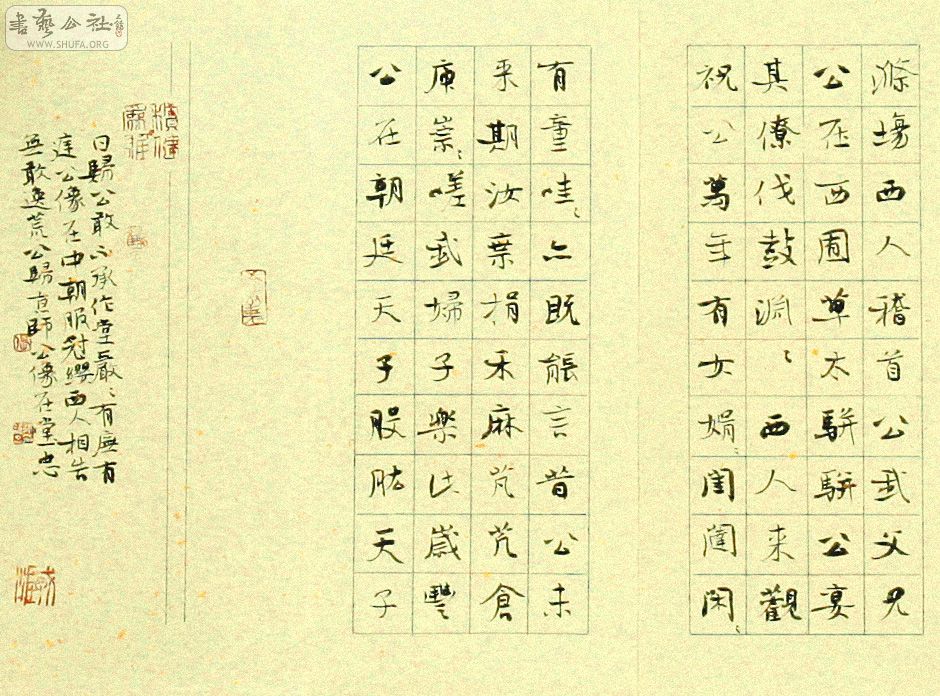 書藝公社
WWW.SHUFA.ORG
滌場西人稽首公我父兄
公在西囿草木駢駢公宴
其僚伐鼓淵〻西人来觀
祝公萬年有女娟〻閨闥閑〻
有童哇〻亦既能言昔公未
来期汝棄捐禾麻芃芃倉
庾崇〻嗟我婦子樂此歲豐
公在朝廷天子股肱天子
曰歸公敢不承作堂嚴〻有廡有
庭公像在中朝服冠纓西人相告
無敢逸荒公歸京師公像在堂忠